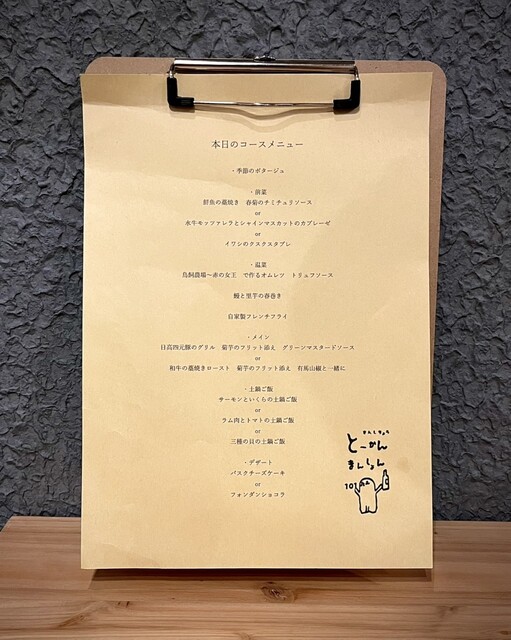 本日のコースメニュー
・季節のポタージュ
・前菜
鮮魚の藁焼き 春菊のチミチュリソース
or
水牛モッツァレラとシャインマスカットのカプレーゼ
or
イワシのクスクスタブレ
・温菜
鳥飼農場〜赤の女王 で作るオムレツ トリュフソース
鰻と里芋の春巻き
自家製フレンチフライ
・メイン
日高四元豚のグリル 菊芋のフリット添え グリーンマスタードソース
or
和牛の藁焼きロースト 菊芋のフリット添え 有馬山椒と一緒に
・土鍋ご飯
サーモンといくらの土鍋ご飯
or
ラム肉とトマトの土鍋ご飯
or
三種の貝の土鍋ご飯
・デザート
バスクチーズケーキ
or
フォンダンショコラ
とーかん
まんしょん
101